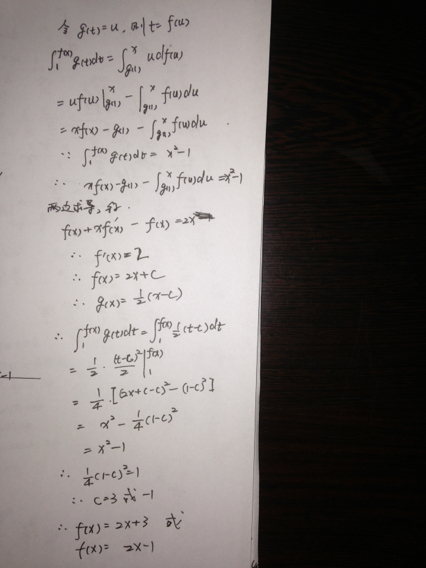 令 g(t)=u, 则 t=f(u)
∫₁^{f(x)} g(t)dt = ∫_{g(1)}^{x} u df(u)
= uf(u)|_{g(1)}^{x} - ∫_{g(1)}^{x} f(u)du
= xf(x) - g(1) - ∫_{g(1)}^{x} f(u)du
∵ ∫₁^{f(x)} g(t)dt = x²-1
∴ xf(x)-g(1) - ∫_{g(1)}^{x} f(u)du = x²-1
两边求导, 得
f(x)+xf'(x) - f(x) = 2x
∴ f'(x) = 2
∴ f(x) = 2x+C
∴ g(x) = ½(x-C)
∴ ∫₁^{f(x)} g(t)dt = ∫₁^{f(x)} ½(t-C)dt
= ½·(t-C)²/2 |₁^{f(x)}
= ¼·[(2x+C-C)² - (1-C)²]
= x² - ¼(1-C)²
= x²-1
∴ ¼(1-C)²=1
∴ C=3 或 -1
∴ f(x) = 2x+3 或
f(x) = 2x-1